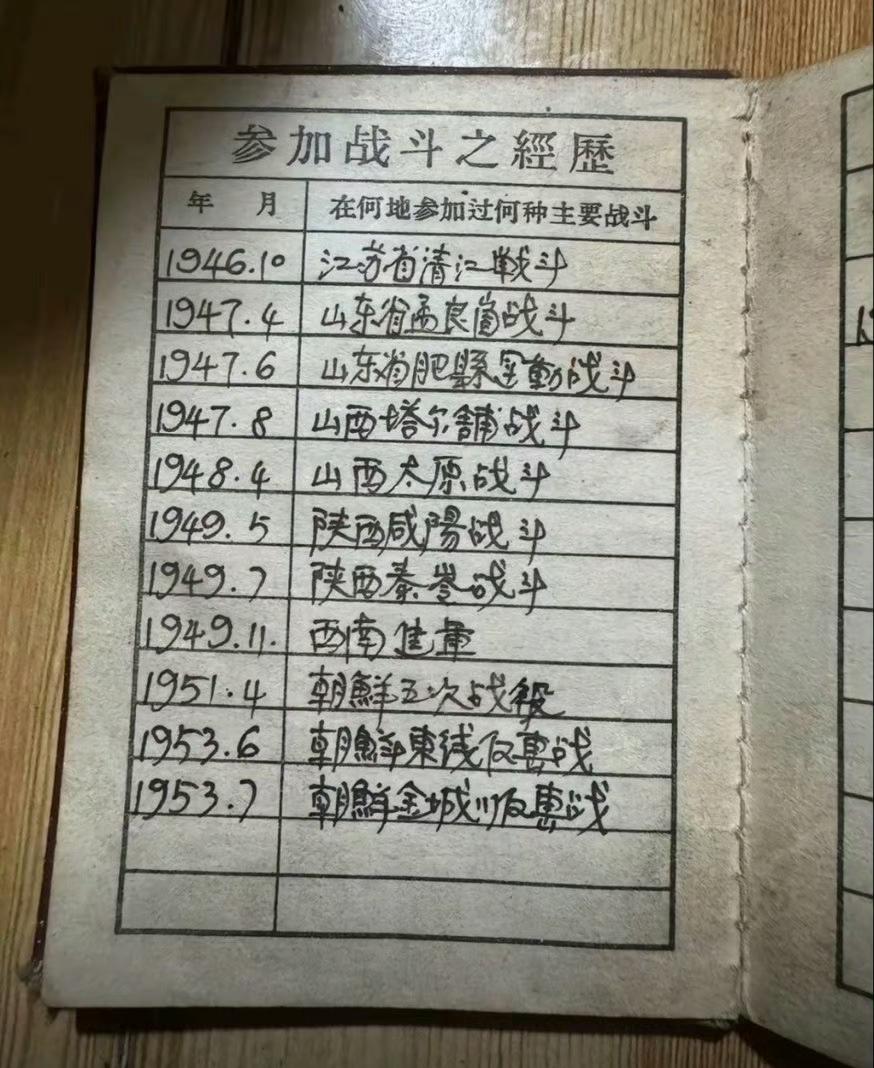 参加战斗之經歷
年 月 在何地参加过何种主要战斗
1946.10 江苏省清江戦斗
1947.4 山东省孟良崮战斗
1947.6 山东省肥縣 動战斗
1947.8 山西塔尔舗战斗
1948.4 山西太原战斗
1949.5 陕西咸陽战斗
1949.7 陕西秦岑战斗
1949.11. 西南進軍
1951.4 朝鮮五次战役
1953.6 朝鮮東线反击战
1953.7 朝鮮金城川反击战